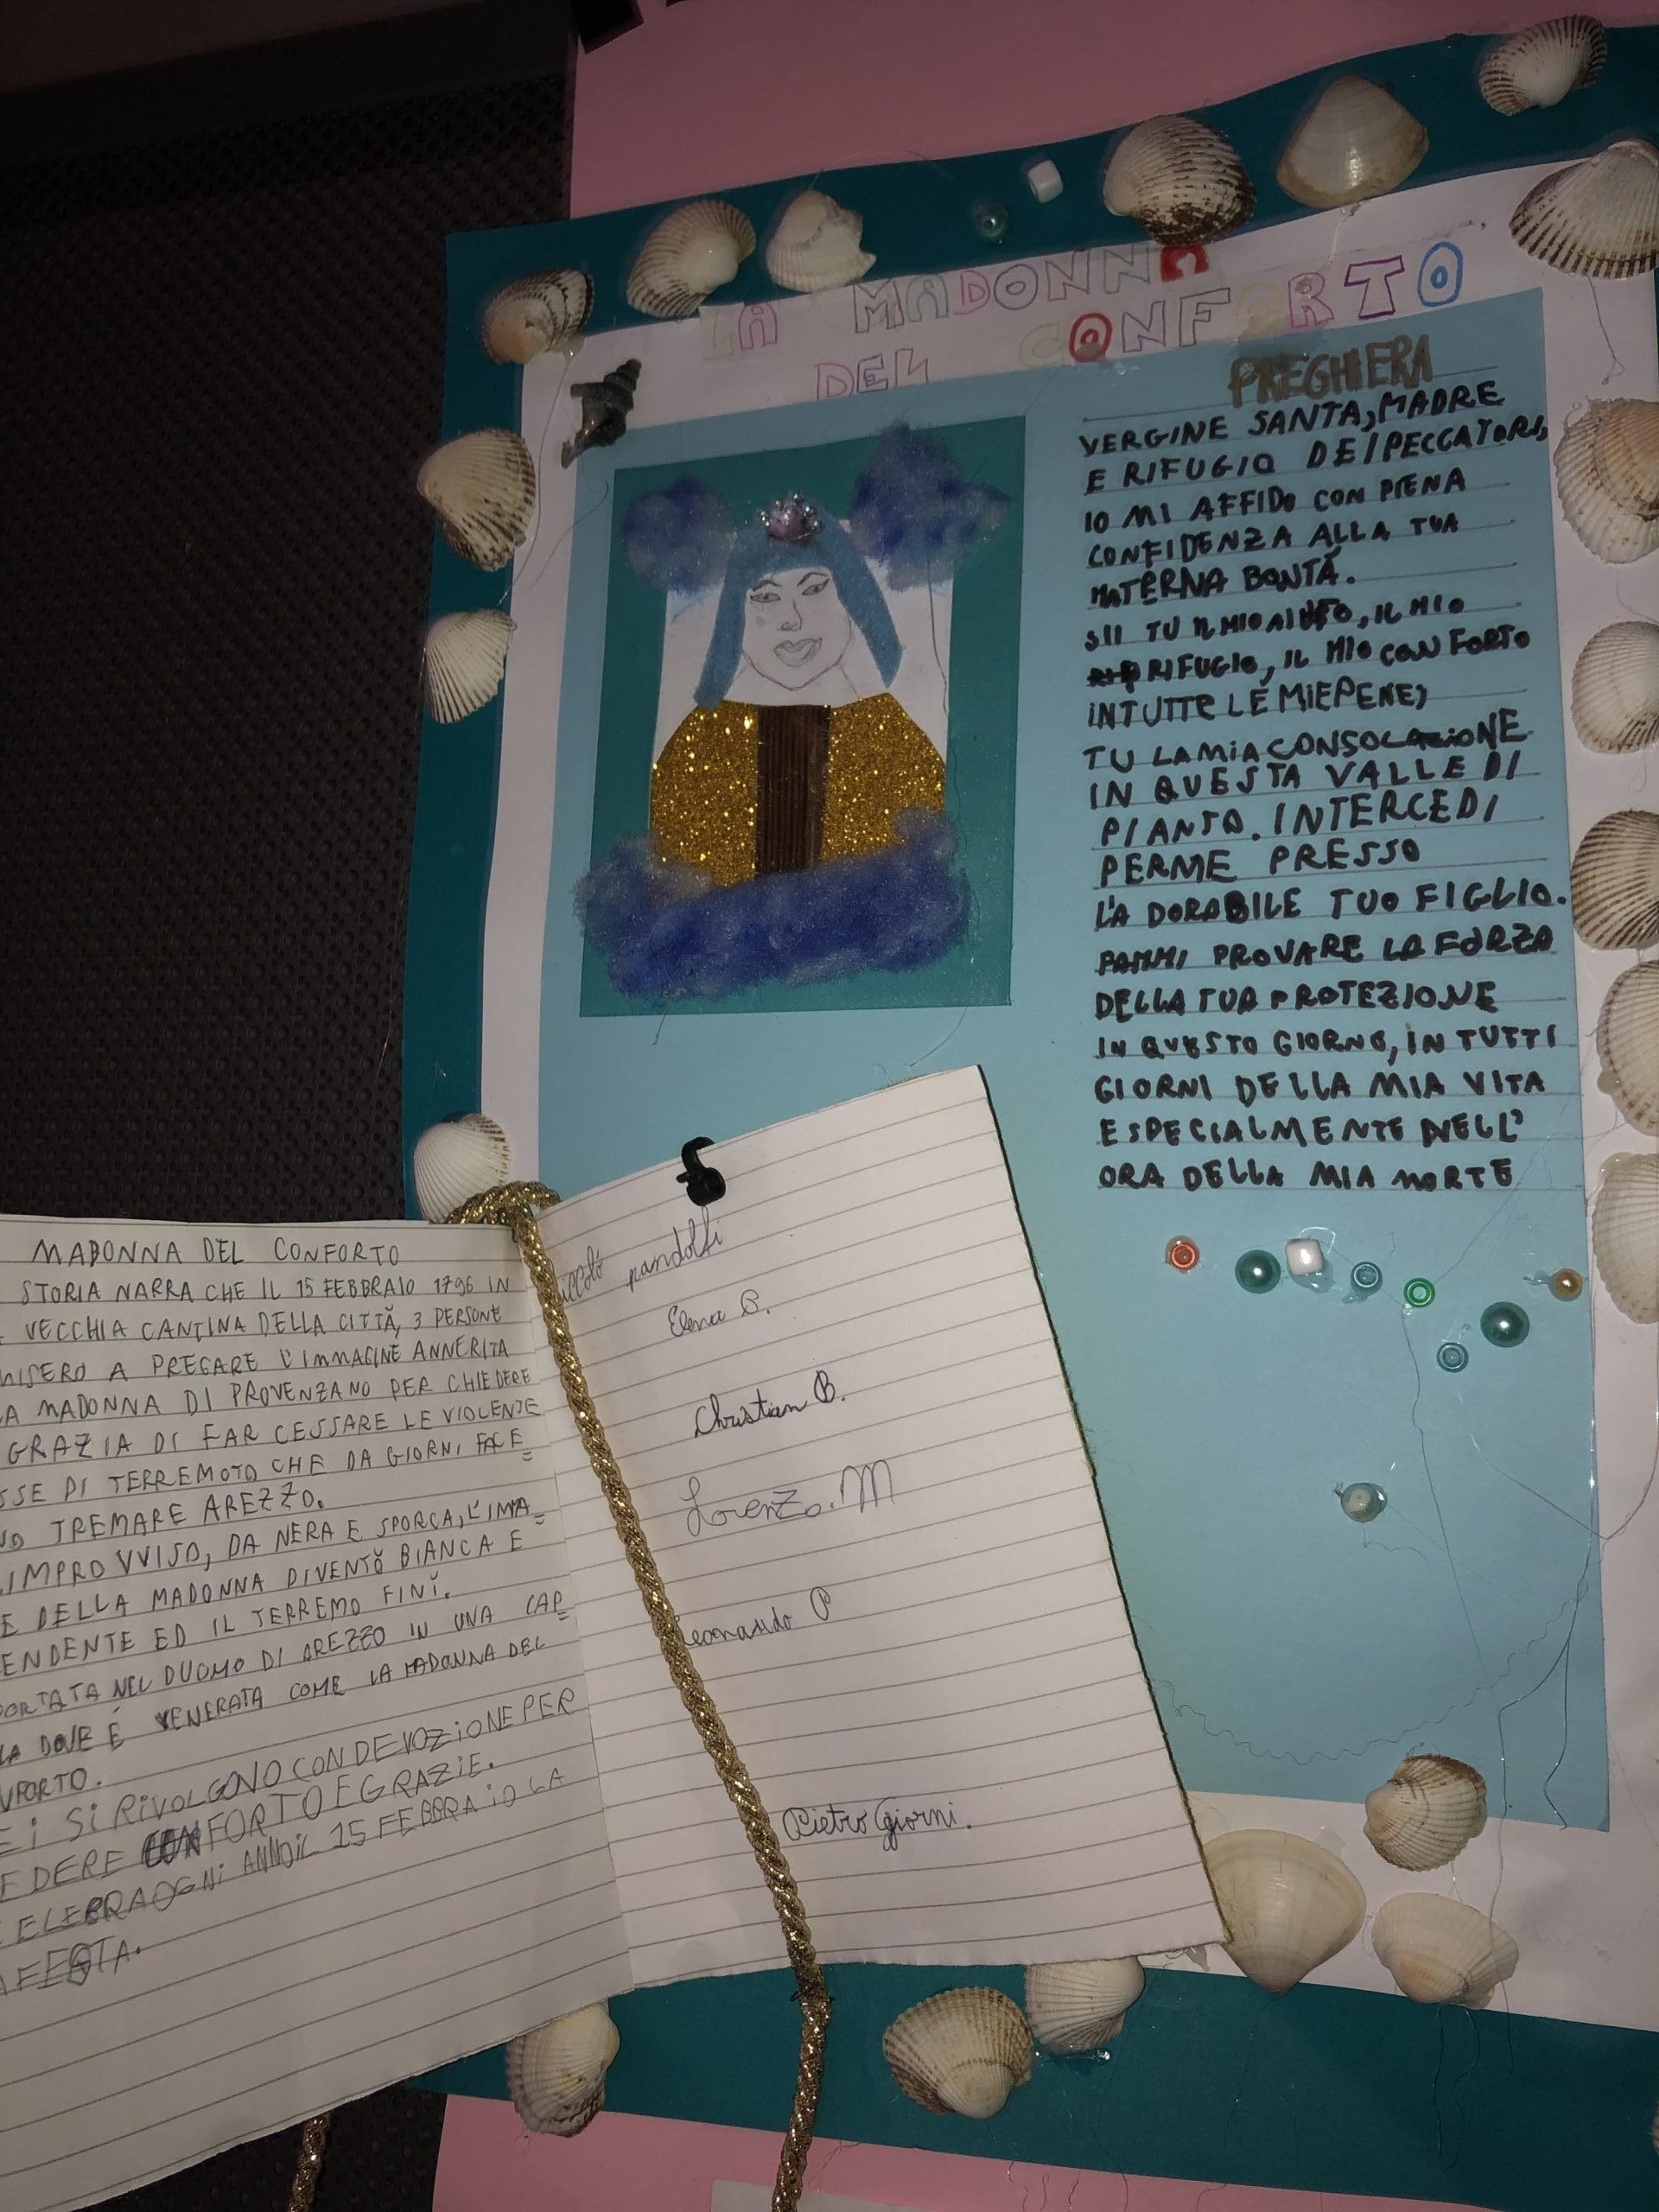 LA MADONNA
DEL CONFORTO
PREGHIERA
VERGINE SANTA, MADRE
E RIFUGIO DEI PECCATORI,
IO MI AFFIDO CON PIENA
CONFIDENZA ALLA TUA
MATERNA BONTÁ.
SII TU IL MIO AIUTO, IL MIO
RIFUGIO, IL MIO CONFORTO
IN TUTTE LE MIE PENE,
TU LA MIA CONSOLAZIONE
IN QUESTA VALLE DI
PIANTO. INTERCEDI
PERME PRESSO
L'A DORABILE TUO FIGLIO.
FAMMI PROVARE LA FORZA
DELLA TUA PROTEZIONE
IN QUESTO GIORNO, IN TUTTI
GIORNI DELLA MIA VITA
E SPECIALMENTE NELL'
ORA DELLA MIA MORTE
MADONNA DEL CONFORTO
STORIA NARRA CHE IL 15 FEBBRAIO 1796 IN
VECCHIA CANTINA DELLA CITTÀ, 3 PERSONE
MISERO A PREGARE L'IMMAGINE ANNERITA
LA MADONNA DI PROVENZANO PER CHIEDERE
GRAZIA DI FAR CESSARE LE VIOLENTE
SSE DI TERREMOTO CHE DA GIORNI FACE=
NO TREMARE AREZZO.
IMPROVVISO, DA NERA E SPORCA, L'IMMA=
E DELLA MADONNA DIVENTÒ BIANCA E
ENDENTE ED IL TERREMO FINÌ.
PORTATA NEL DUOMO DI AREZZO IN UNA CAP=
LA DOVE É VENERATA COME LA MADONNA DEL
NFORTO.
EI SI RIVOLGONO CON DEVOZIONE PER
EDERE CONFORTO E GRAZIE.
ELEBRA OGNI ANNO IL 15 FEBBRAIO LA
A FESTA.
iccoló pandolfi
Elena B.
Christian B.
Lorenzo. M
Leonardo P
Pietro Giorni.